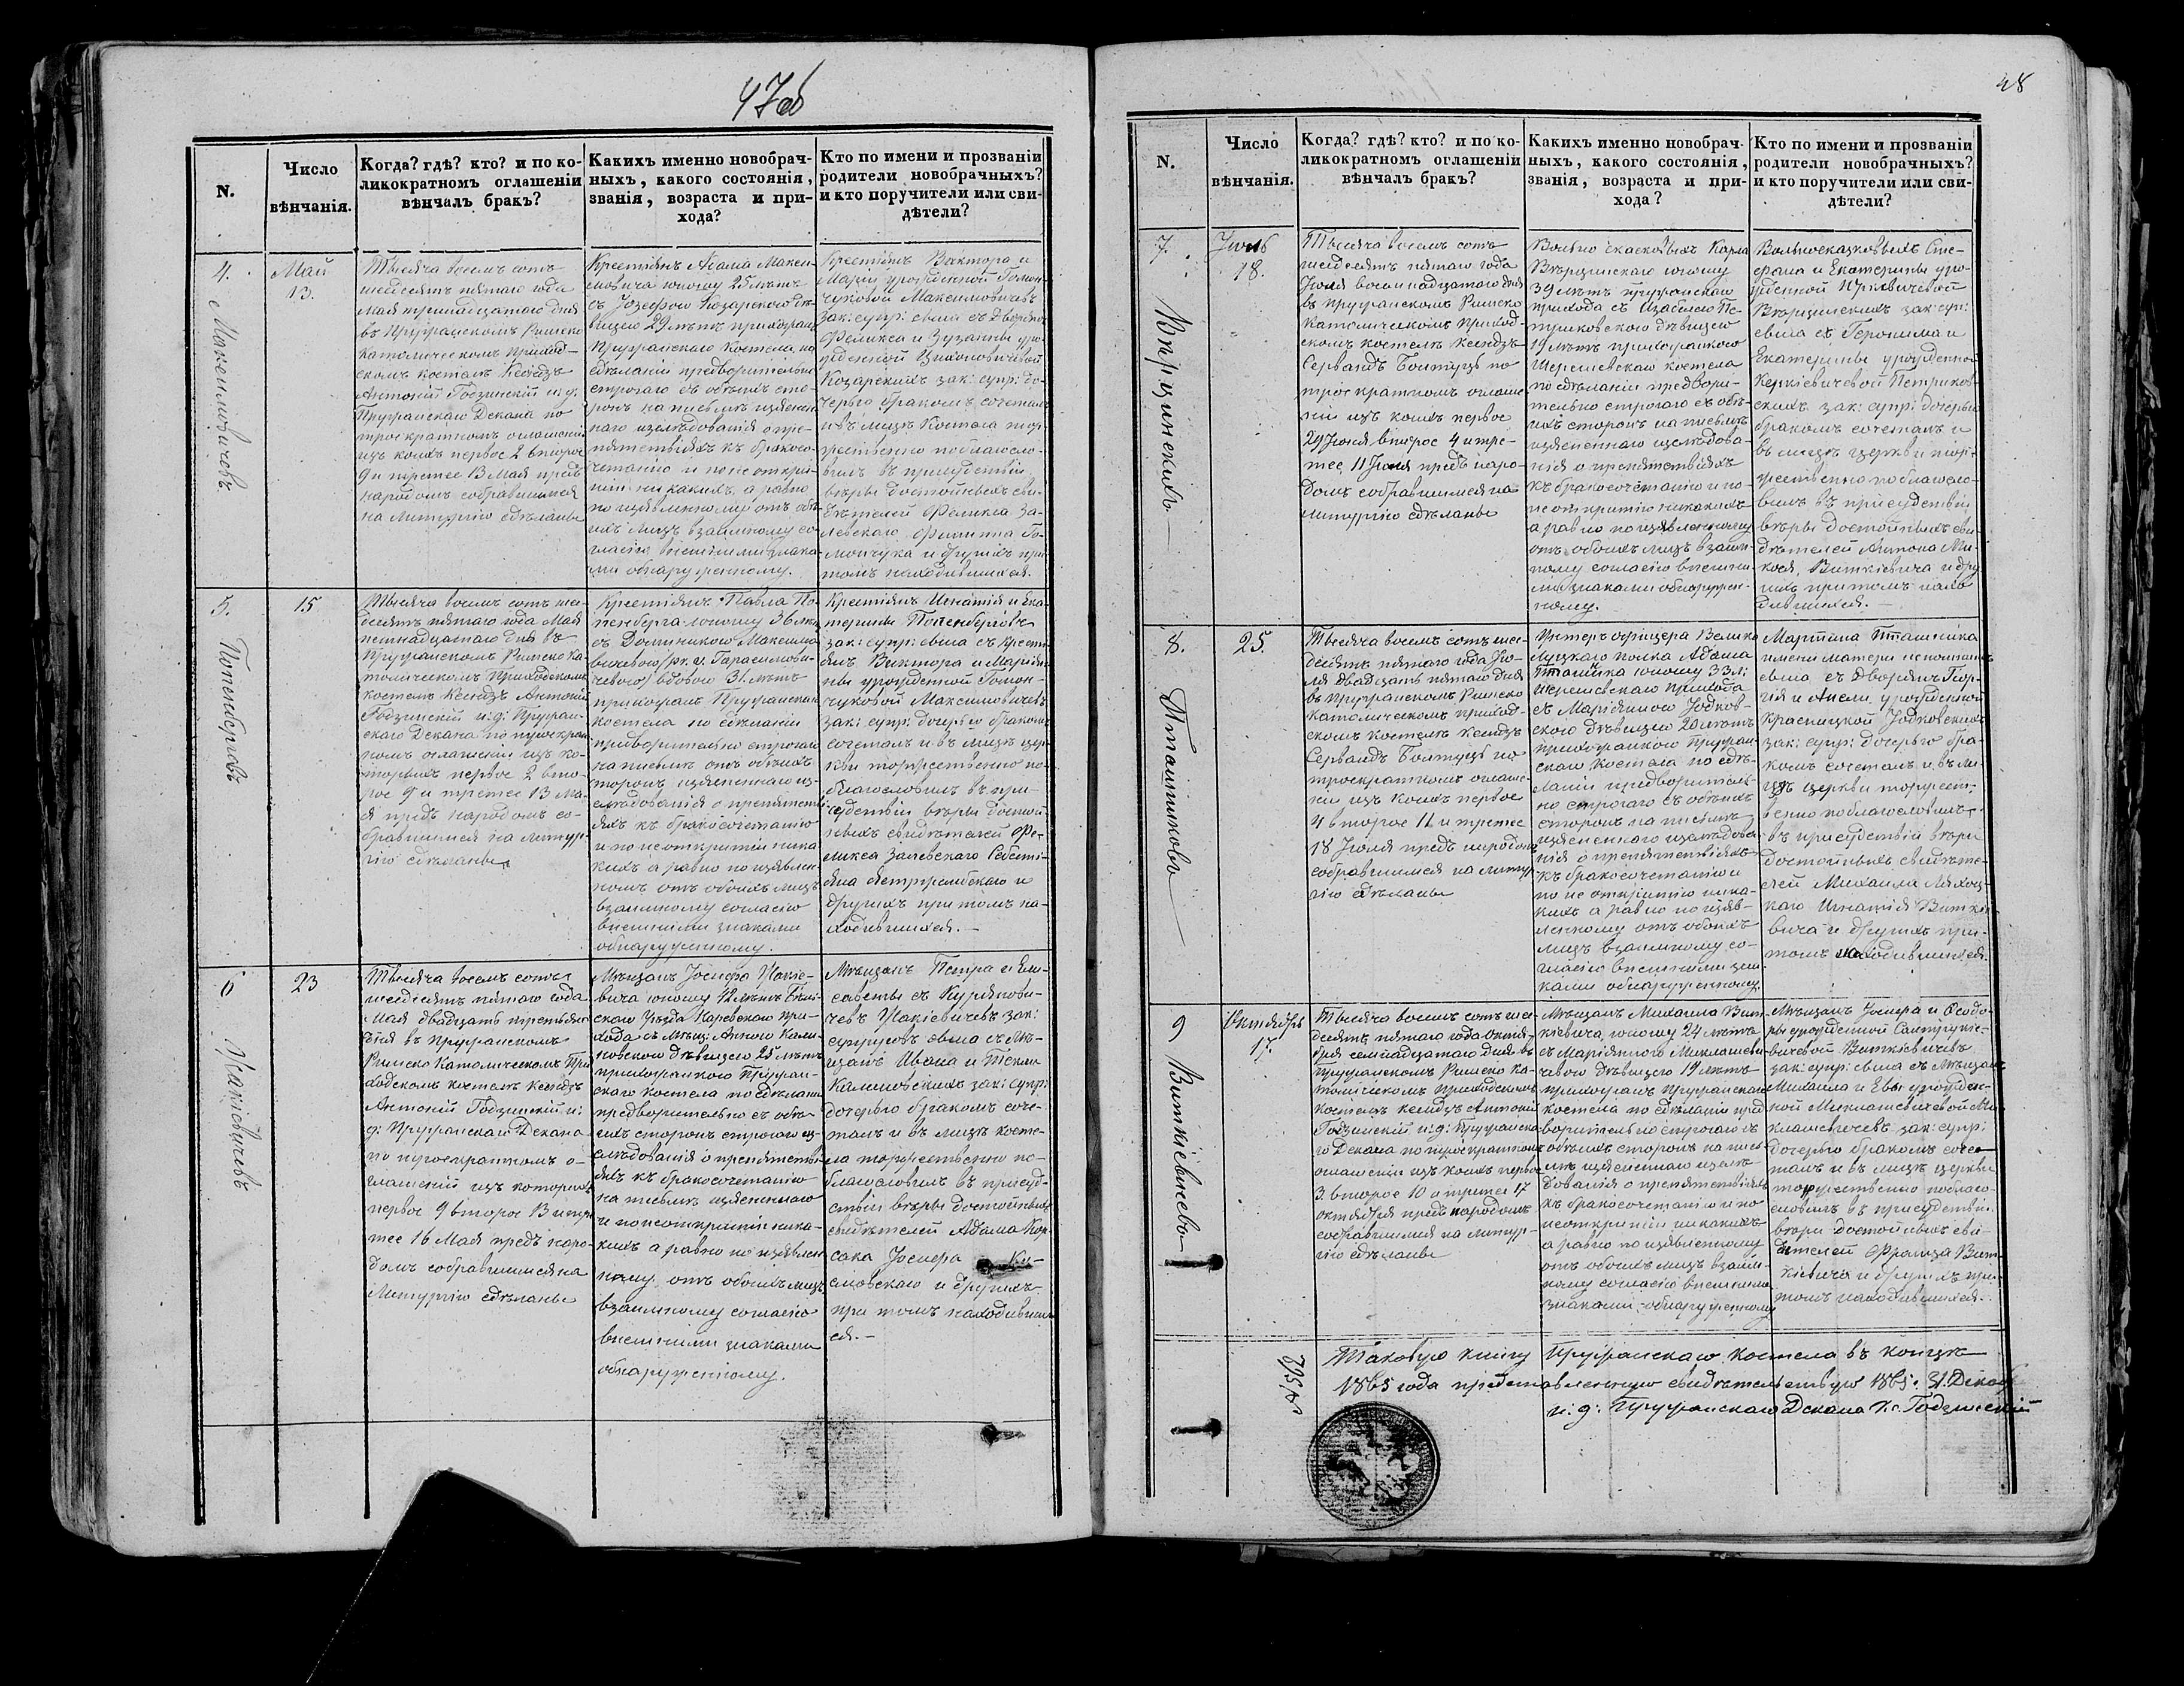 47об
N.
Число
вѣнчанія.
Когда? гдѣ? кто? и по ко-
ликократномъ оглашеніи
вѣнчалъ бракъ?
Какихъ именно новобрач-
ныхъ, какого состоянія,
званія, возраста и при-
хода?
Кто по имени и прозваніи
родители новобрачныхъ?
и кто поручители или сви-
дѣтели?
4.
Максимовичовъ
Май
13.
Тысяча восемъ сотъ
шесдесятъ пятаго года
мая тринадцатаго дня
въ Пружанскомъ Римско
католическомъ приход-
скомъ костелѣ Ксендзъ
Антоній Годзинскій и.д.
Пружанскаго Декана по
троекратномъ оглашеніи
изъ коихъ первое 2 второе
9 и третее 13 Мая предъ
народомъ собравшимся
на литургію сдѣланы
Крестіянъ Адама Макси-
мовича юношу 25 лѣтъ
съ Іозефою Козарскою дѣ-
вицею 29 лѣтъ прихожанъ
Пружанскаго Костела, по
сдѣланіи предворительно
строгаго съ обѣихъ сто-
ронъ на письмѣ изяснен-
наго изслѣдованія о пре-
пятствіяхъ къ бракосо-
четанію и по не откры-
тіи ни какихъ а равно
по изявленному отъ обѣ-
ихъ лицъ взаимному со-
гласію внешними знака-
ми обнаруженному.
Крестіянъ Виктора и
Маріи урожденной Гомон-
чуковой Максимовичовъ
зак: супр: сына съ Дворянъ
Феликса и Зузанны уро-
жденной
Козарскихъ зак: супр: до-
черью бракомъ сочеталъ
и въ лицѣ Костела тор-
жественно поблагосло-
вилъ въ присудствіи
вѣры достойныхъ сви-
дѣтелей Феликса За-
левскаго Филипа Го-
мончука и другихъ при
томъ находившихся.
5.
Попенберговъ
15
Тысяча восемъ сотъ шес-
десятъ пятаго года Мая
петнадцатаго дня въ
Пружанскомъ Римско Ка-
толическомъ Приходскомъ
костелѣ Ксендзъ Антоній
Годзинскій и:д: Пружан-
скаго Декана по троекрат-
номъ оглашеніи изъ ко-
торыхъ первое 2 вто-
рое 9 и третее 13 Ма-
я предъ народомъ со-
бравшимся на литур-
гію сдѣланы
Крестіянъ Павла По-
пенберга юношу 36 лѣтъ
съ Доминикою Максимо-
вичевою Гарасимови-
чевою вдовою 31. лѣтъ
прихожанъ Пружанскаго
костела по сдѣланіи
предворительно строгаго
на письмѣ отъ обѣихъ
сторонъ изясненнаго из-
слѣдованія о препятстві-
яхъ къ бракосочетанію
и по не открытіи ника-
кихъ а равно по изявлен-
номъ отъ обоихъ лицъ
взаимному согласію
внешними знаками
обнаруженному.
Крестіянъ Игнатія и Ека-
терины Попенберговъ
зак: супр: сына съ Кресті-
янъ Виктора и Маріян-
ны урожденной Гомон-
чуковой Максимовичевъ
зак: супр: дочерью бракомъ
сочеталъ и въ лицѣ цер-
кви торжественно по-
благословилъ въ при-
судствіи вѣры достой-
ныхъ свидѣтелей Фе-
ликса Залевскаго Себасті-
яна Ястржембскаго и
другихъ при томъ на-
ходившихся.
6
23
Тысяча восемъ сотъ
шесдесятъ пятаго года
Мая двадцать третьяго
дня въ Пружанскомъ
Римско Католическомъ При-
ходскомъ костелѣ Ксендзъ
Антоній Годзинскій и:
д: Пружанскаго Декана
по троекратномъ о-
глашеній изъ которыхъ
первое 9 второе 13 и тре-
тее 16 Мая предъ наро-
домъ собравшимся на
Литургію сдѣланы
Мѣщанъ Іосифа
вича юношу 42 лѣтъ Бѣль-
скаго Уѣзда Наревскаго при-
хода съ Мѣщ: Анною Кали-
новскою дѣвицею 25 лѣтъ
прихожанкою Пружан-
скаго костела по сдѣланіи
предворительно съ обѣ-
ихъ сторонъ строгаго из-
слѣдованія о препятстві-
яхъ къ бракосочетанію
на письмѣ изясненнаго
и по не открытіи ника-
кихъ а равно по изявлен-
ному отъ обоихъ лицъ
взаимному согласію
внешними знаками
обнаруженному.
Мѣщанъ Петра и Ели-
саветы съ Курянови-
чевъ зак:
супруговъ сына съ Мѣ-
щанъ Ивана и Теклы
Калиновскихъ зак: супр:
дочерью бракомъ соче-
талъ и въ лицѣ косте-
ла торжественно по-
благословилъ въ присуд-
ствіи вѣры достойныхъ
свидѣтелей Адама Кор-
сака Іосифа
словскаго и другихъ
при томъ находивших-
ся.
48
N.
Число
вѣнчанія.
Когда? гдѣ? кто? и по ко-
ликократномъ оглашеніи
вѣнчалъ бракъ?
Какихъ именно новобрач-
ныхъ, какого состоянія,
званія, возраста и при-
хода?
Кто по имени и прозваніи
родители новобрачныхъ?
и кто поручители или сви-
дѣтели?
7.
18.
Тысяча восемъ сотъ
шесдесятъ пятаго года
Іюля восемнадцатаго дня
въ Пружанскомъ Римско
Католическомъ Приход-
скомъ костелѣ Ксендзъ
Сервандъ Болтуць по
троекратномъ оглаше-
ніи изъ коихъ первое
29 Іюня второе 4 и тре-
тее 11 Іюля предъ наро-
домъ собравшимся на
литургію сдѣланы
Вольно сказковыхъ Карла
юношу
39 лѣтъ Пружанскаго
прихода съ Изабелею Пе-
триковскою дѣвицею
19 лѣтъ прихожанкою
Шерешевскаго костела
по сдѣланіи предвори-
тельно строгаго съ обѣ-
ихъ сторонъ на письмѣ
изясненнаго изслѣдова-
нія о препятствіяхъ
къ бракосочетанію и по
не открытію никакихъ
а равно по изявленному
отъ обоихъ лицъ взаим-
ному согласію внешни-
ми знаками обнаружен-
ному.
Вольносказковыхъ Сте-
фана и Екатерины уро-
жденной
зак: супр:
сына съ Геронима и
Екатерины урожденной
Керкіевичевой Петриков-
скихъ зак: супр: дочерью
бракомъ сочеталъ и
въ лицѣ церкви тор-
жественно поблагосло-
вилъ въ присудствіи
вѣры достойныхъ сви-
дѣтелей Антона Ми-
кося, Виткіевича и дру-
гихъ при томъ нахо-
дившихся.
8.
Пташниково
25.
Тысяча восемъ сотъ шес-
десятъ пятаго года Ію-
ля двадцать пятаго дня
въ Пружанскомъ Римско
католическомъ приход-
скомъ костелѣ ксендзъ
Сервандъ Болтуць по
троекратномъ оглаше-
ніи изъ коихъ первое
4 второе 11 и третее
18 Іюля предъ народомъ
собравшимся на литур-
гію сдѣланы
Унтеръ офицера Велико
Луцкаго полка Адама
Пташника юношу 33 л:
Шерешевскаго прихода
съ Маріянною Іодков-
скою дѣвицею 20 лѣтъ
прихожанкою Пружан-
скаго костела по сдѣ-
ланіи предворитель-
но строгаго съ обѣихъ
сторонъ на письмѣ
изясненнаго изслѣдова-
нія о препятствіяхъ
къ бракосочетанію и
по не открытію ника-
кихъ а равно по изяв-
ленному отъ обоихъ
лицъ взаимному со-
гласію внешними зна-
ками обнаруженному.
Мартина Пташника
имени матери
сына съ Дворянъ Геор-
гія и Анели урожденной
Красницкой Іодковскихъ
зак: супр: дочерью бра-
комъ сочеталъ и въ ли-
цѣ церкви торжест-
венно поблагословилъ
въ присудствіи вѣры
достойныхъ свидѣте-
лей Михаила Ляхоц-
каго Игнатія Виткіе-
вича и другихъ при-
томъ находившихся.
9
Виткіевичево
Октябрь
17.
Тысяча восемъ сотъ шес-
десятъ пятаго года октя-
бря семнадцатаго дня въ
Пружанскомъ Римско Ка-
толическомъ приходскомъ
костелѣ ксендзъ Антоній
Годзинскій и:д: Пружанска-
го Декана по троекратномъ
оглашеніи изъ коихъ первое
3. второе 10 и третее 17
октября предъ народомъ
собравшимся на литур-
гію сдѣланы
Мѣщанъ Михаила Вит-
кіевича, юношу 24 лѣтъ
съ Маріянною Миклашеви-
чевою дѣвицею 19 лѣтъ
прихожанъ Пружанскаго
костела по сдѣланіи пред-
ворительно строгаго съ
обѣихъ сторонъ на пись-
мѣ изясненнаго изслѣ-
дованія о препятствіяхъ
къ бракосочетанію и по
неоткрытіи никакихъ
а равно по изявленному
отъ обоихъ лицъ взаим-
ному согласію внешними
знаками обнаруженному
Мѣщанъ Іосифа и Феодо-
ры урожденной
вичевой Виткіевичевъ
зак: супр: сына съ Мѣщанъ
Михаила и Евы урожден-
ной Миклашевичевой Ми-
клашевичевъ зак: супр:
дочерью бракомъ соче-
талъ и въ лицѣ церкви
торжественно поблаго-
словилъ въ присудствіи
вѣры достойныхъ сви-
дѣтелей Франца Вит-
кіевича и другихъ при-
томъ находившихся.
Таковую книгу Пружанскаго костела въ концѣ
1865 года представленную свидѣтельствую 1865 г. 31 Декаб
и: д: Пружанскаго Декана Кс. Годзинскій